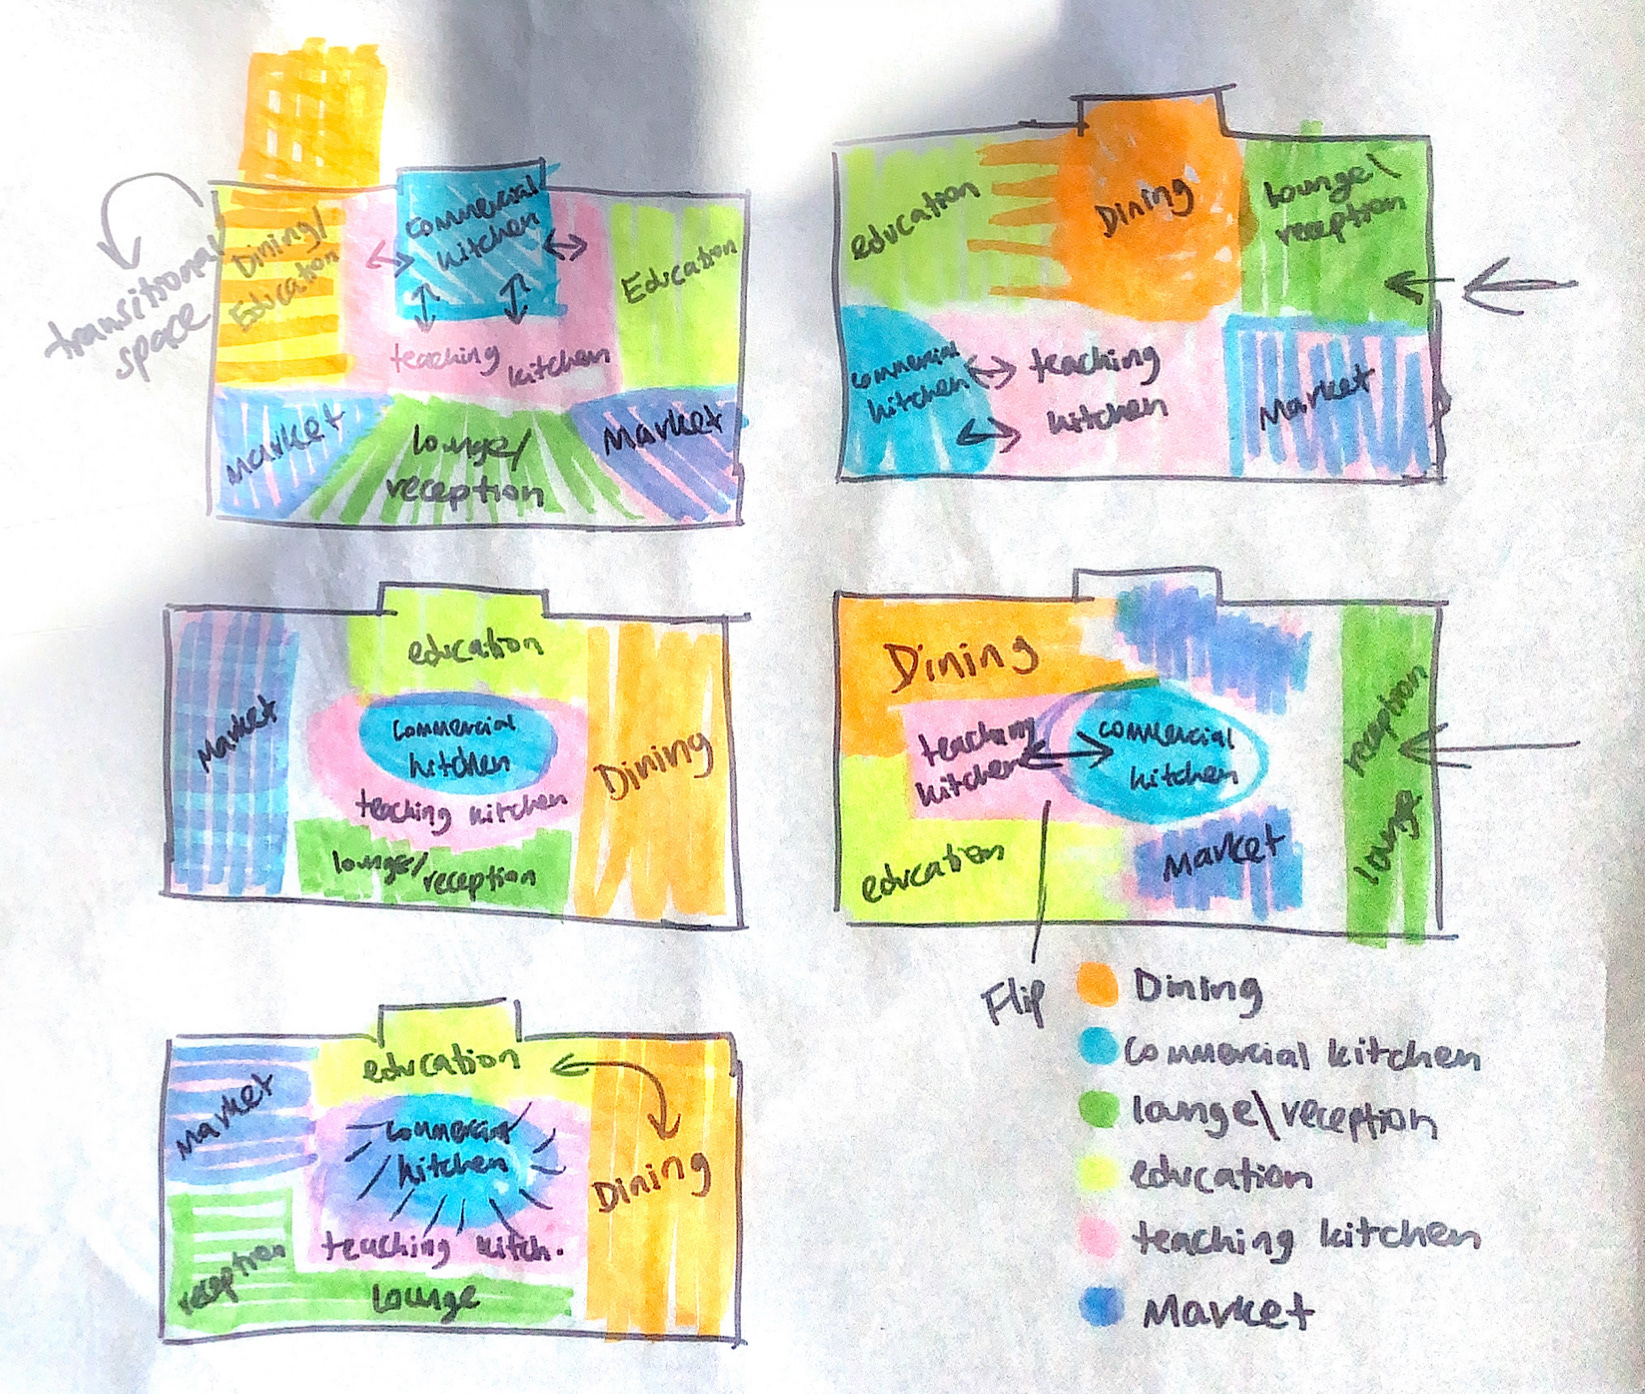 transitional
space
Dining/
Education
Commercial
kitchen
Education
teaching
kitchen
Market
lounge/
reception
Market
education
Dining
lounge/
reception
commercial
kitchen
teaching
kitchen
Market
Market
education
Commercial
kitchen
teaching kitchen
lounge/reception
Dining
Dining
teaching
kitchen
commercial
kitchen
education
Market
reception
lounge
Flip
Market
education
commercial
kitchen
Dining
teaching kitch.
reception
lounge
Dining
Commercial kitchen
lounge/reception
education
teaching kitchen
Market